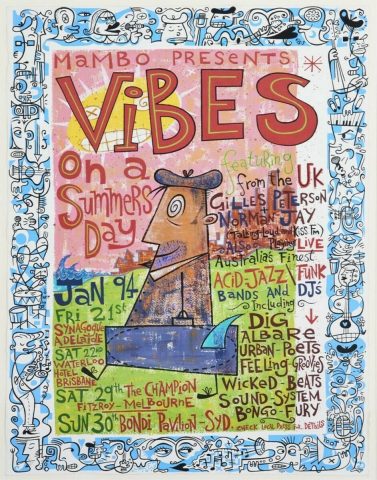 MaMBO PRESENTS
ViBES
On a
Summers
Day
featuring
from the UK
GILLES PETERSON
NORMAN JAY
(Talking Loud and Kiss Fm)
Also Playing LIVE
Australia's Finest
ACID JAZZ FUNK
BANDS AND DJs
Including
DIG
ALBARE
URBAN-POETS
FEELING GROOVIES
WICKED-BEATS
SOUND-SYSTEM
BONGO-FURY
CHECK LOCAL PRESS for DETAILS
JAN 94
FRI 21st
SYNAGOGUE
ADELAIDE
SAT 22nd
WATERLOO
HOTEL
BRISBANE
SAT 29th THE CHAMPION
FITZROY-MELBOURNE
SUN 30th BONDI PAVILION-SYD.